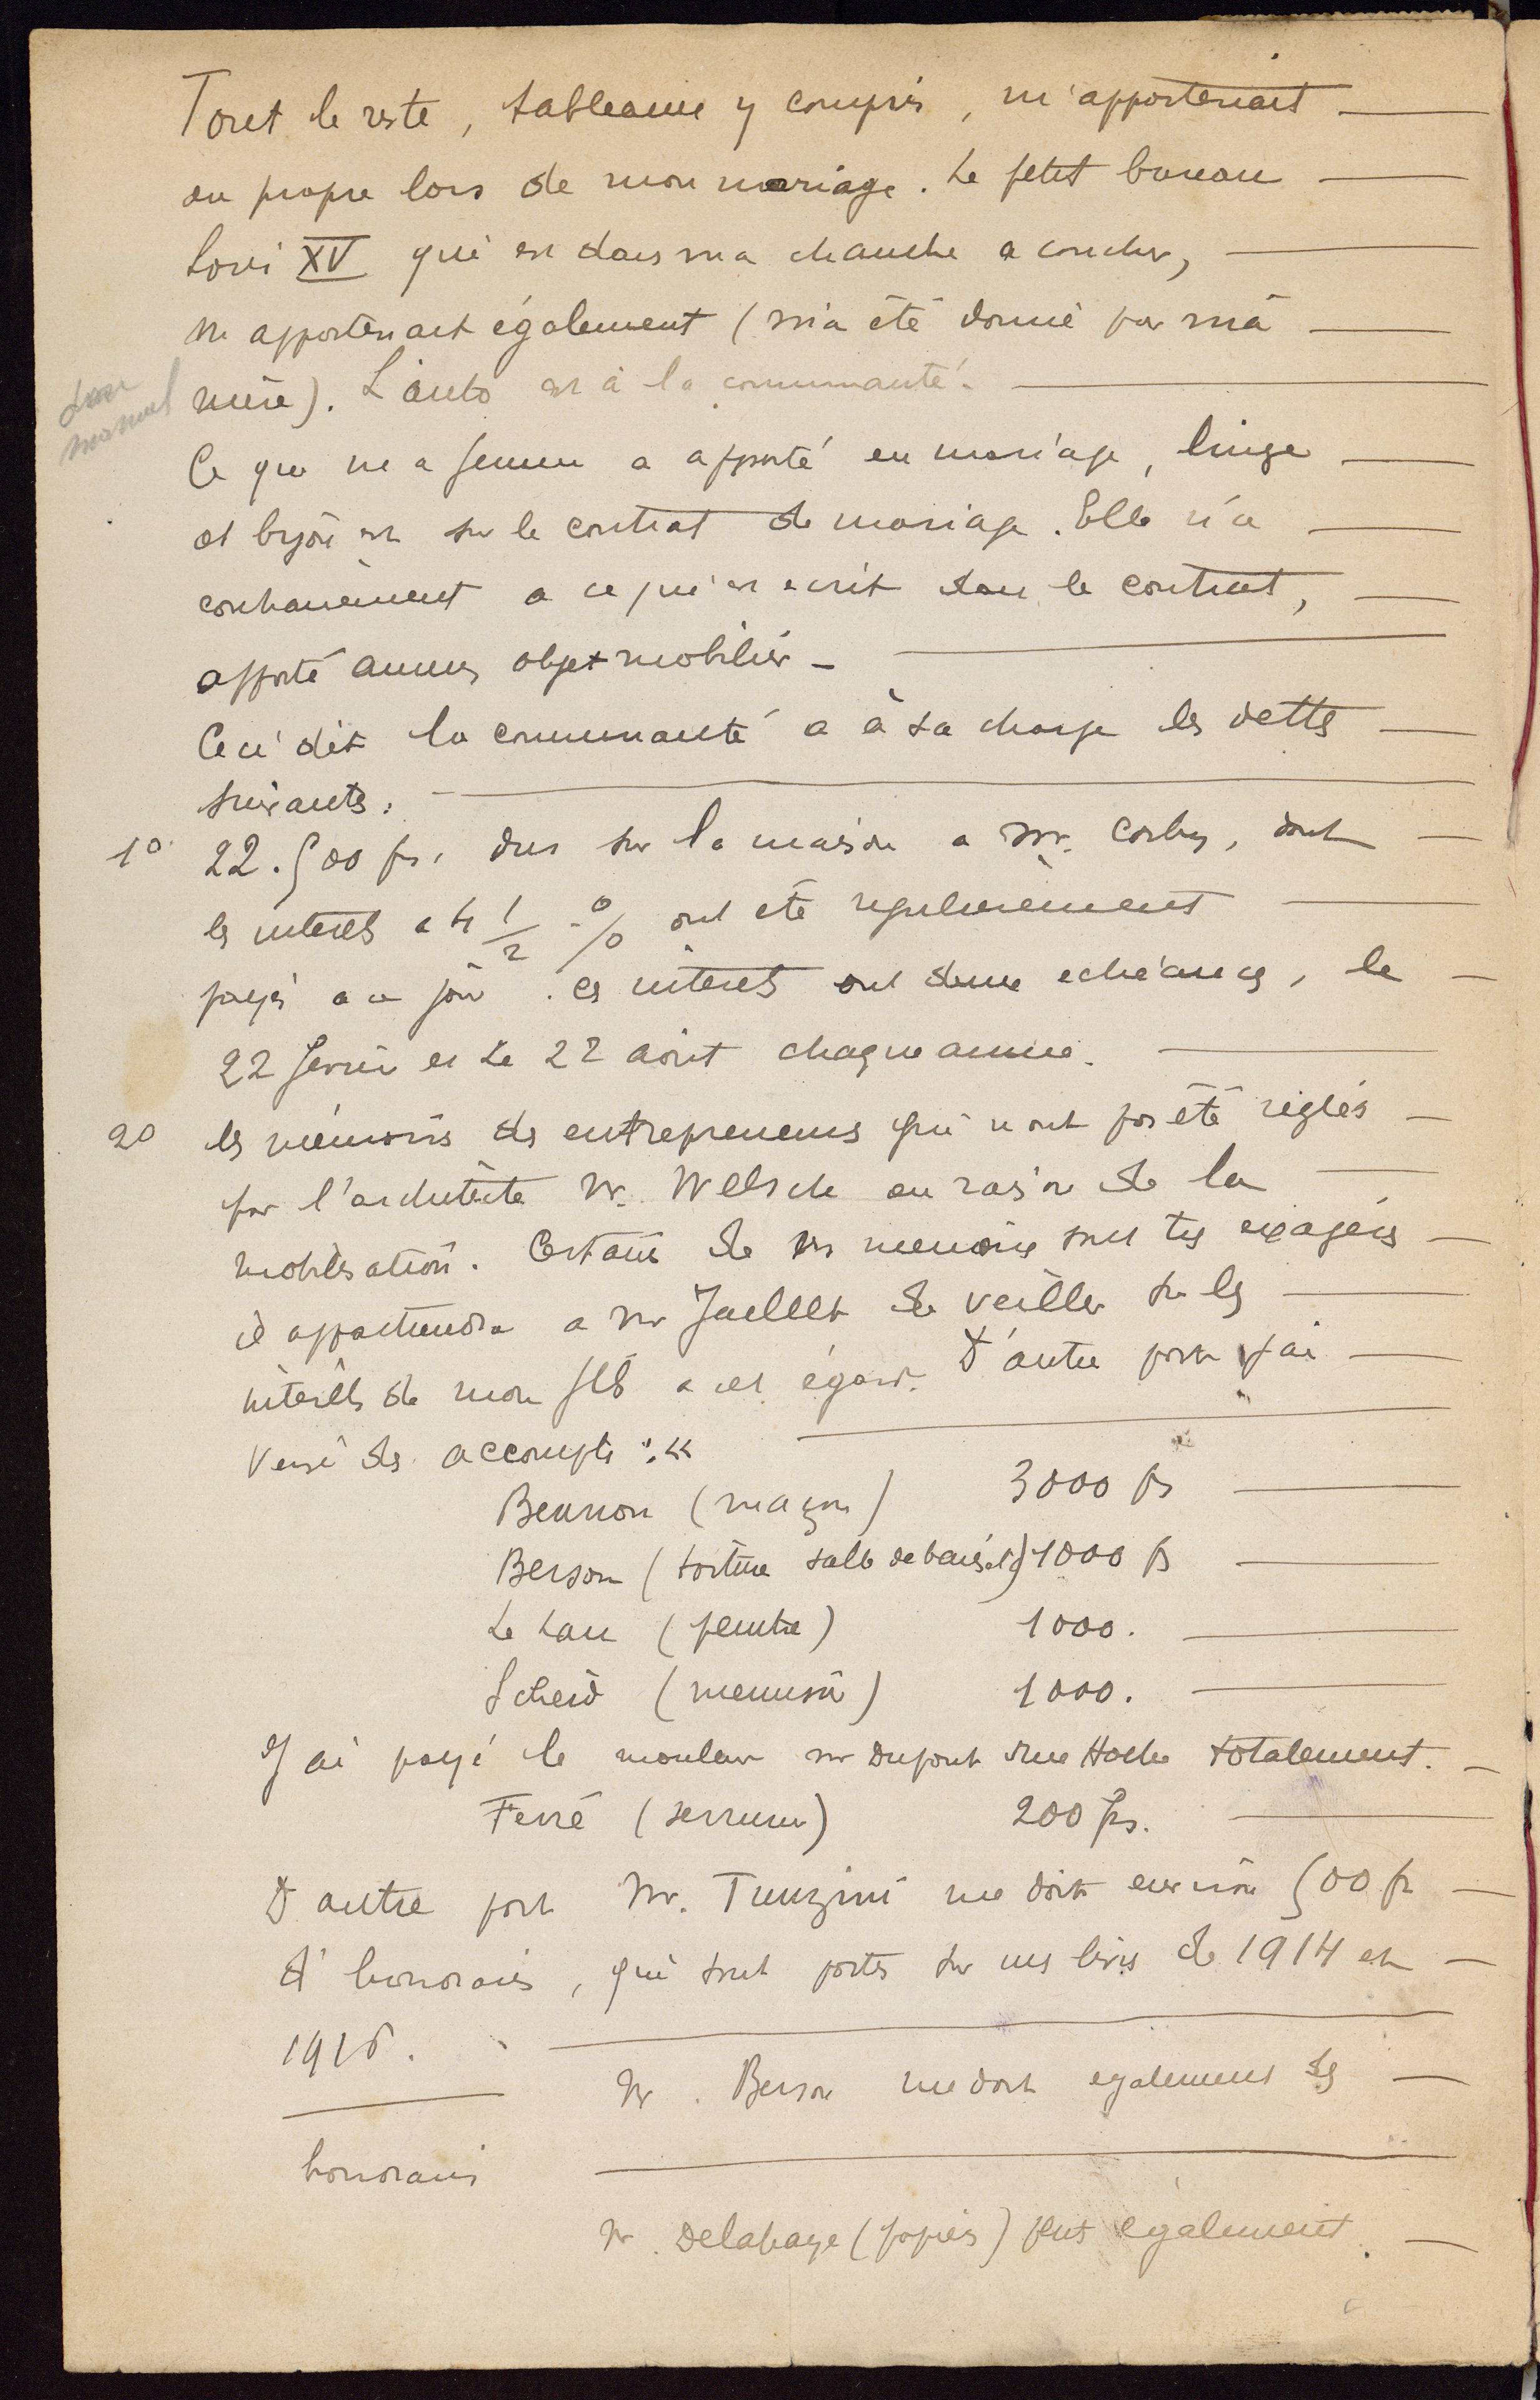 Tout le reste, tableaux y compris, m'appartenait
en propre lors de mon mariage. Le petit bureau
Louis XV qui est dans ma chambre a coucher,
m'appartenait également (m'a été donné par ma
mère). L'auto est à la communauté.
don
manuel
Ce que ma femme a apporté en mariage, linge
et bijou est sur le contrat de mariage. Elle n'a
contrairement a ce qui est ecrit dans le contrat,
apporté aucun objet mobilier -
Ceci dit la communauté a à sa charge les dettes
suivants.
1° 22.500 frs. dus sur la maison a Mr. , dont
les interets a 4 1/2 % ont été regulierement
payés a ce jour. Ces interets ont deux echéances, le
22 fevrier et le 22 août chaque annee.
2° les mémoires des entrepreneurs qui n'ont pas été réglés
par l'architecte Mr. Welsch en raison de la
mobilisation. Certains de ces memoires sont tres exagérés
il appartiendra a Mr de veiller sur les
intérêts de mon fils a cet égard. D'autre part j'ai
versé des accompts :
(maçon) 3000 frs
Berson (toiture salle de bains etc) 1000 frs
(peintre) 1000.
Scheid (menuisier) 1000.
J'ai payé le mouleur Mr Dupont rue Hoche totalement.
Ferré (serrurier) 200 frs.
D'autre part Mr. me doit environ 500 frs
d'honoraires, qui sont portés sur mes livres de 1914 et
1915.
Mr. Berson me doit egalement des
honoraires
Mr. Delahaye (papiers) peints également.